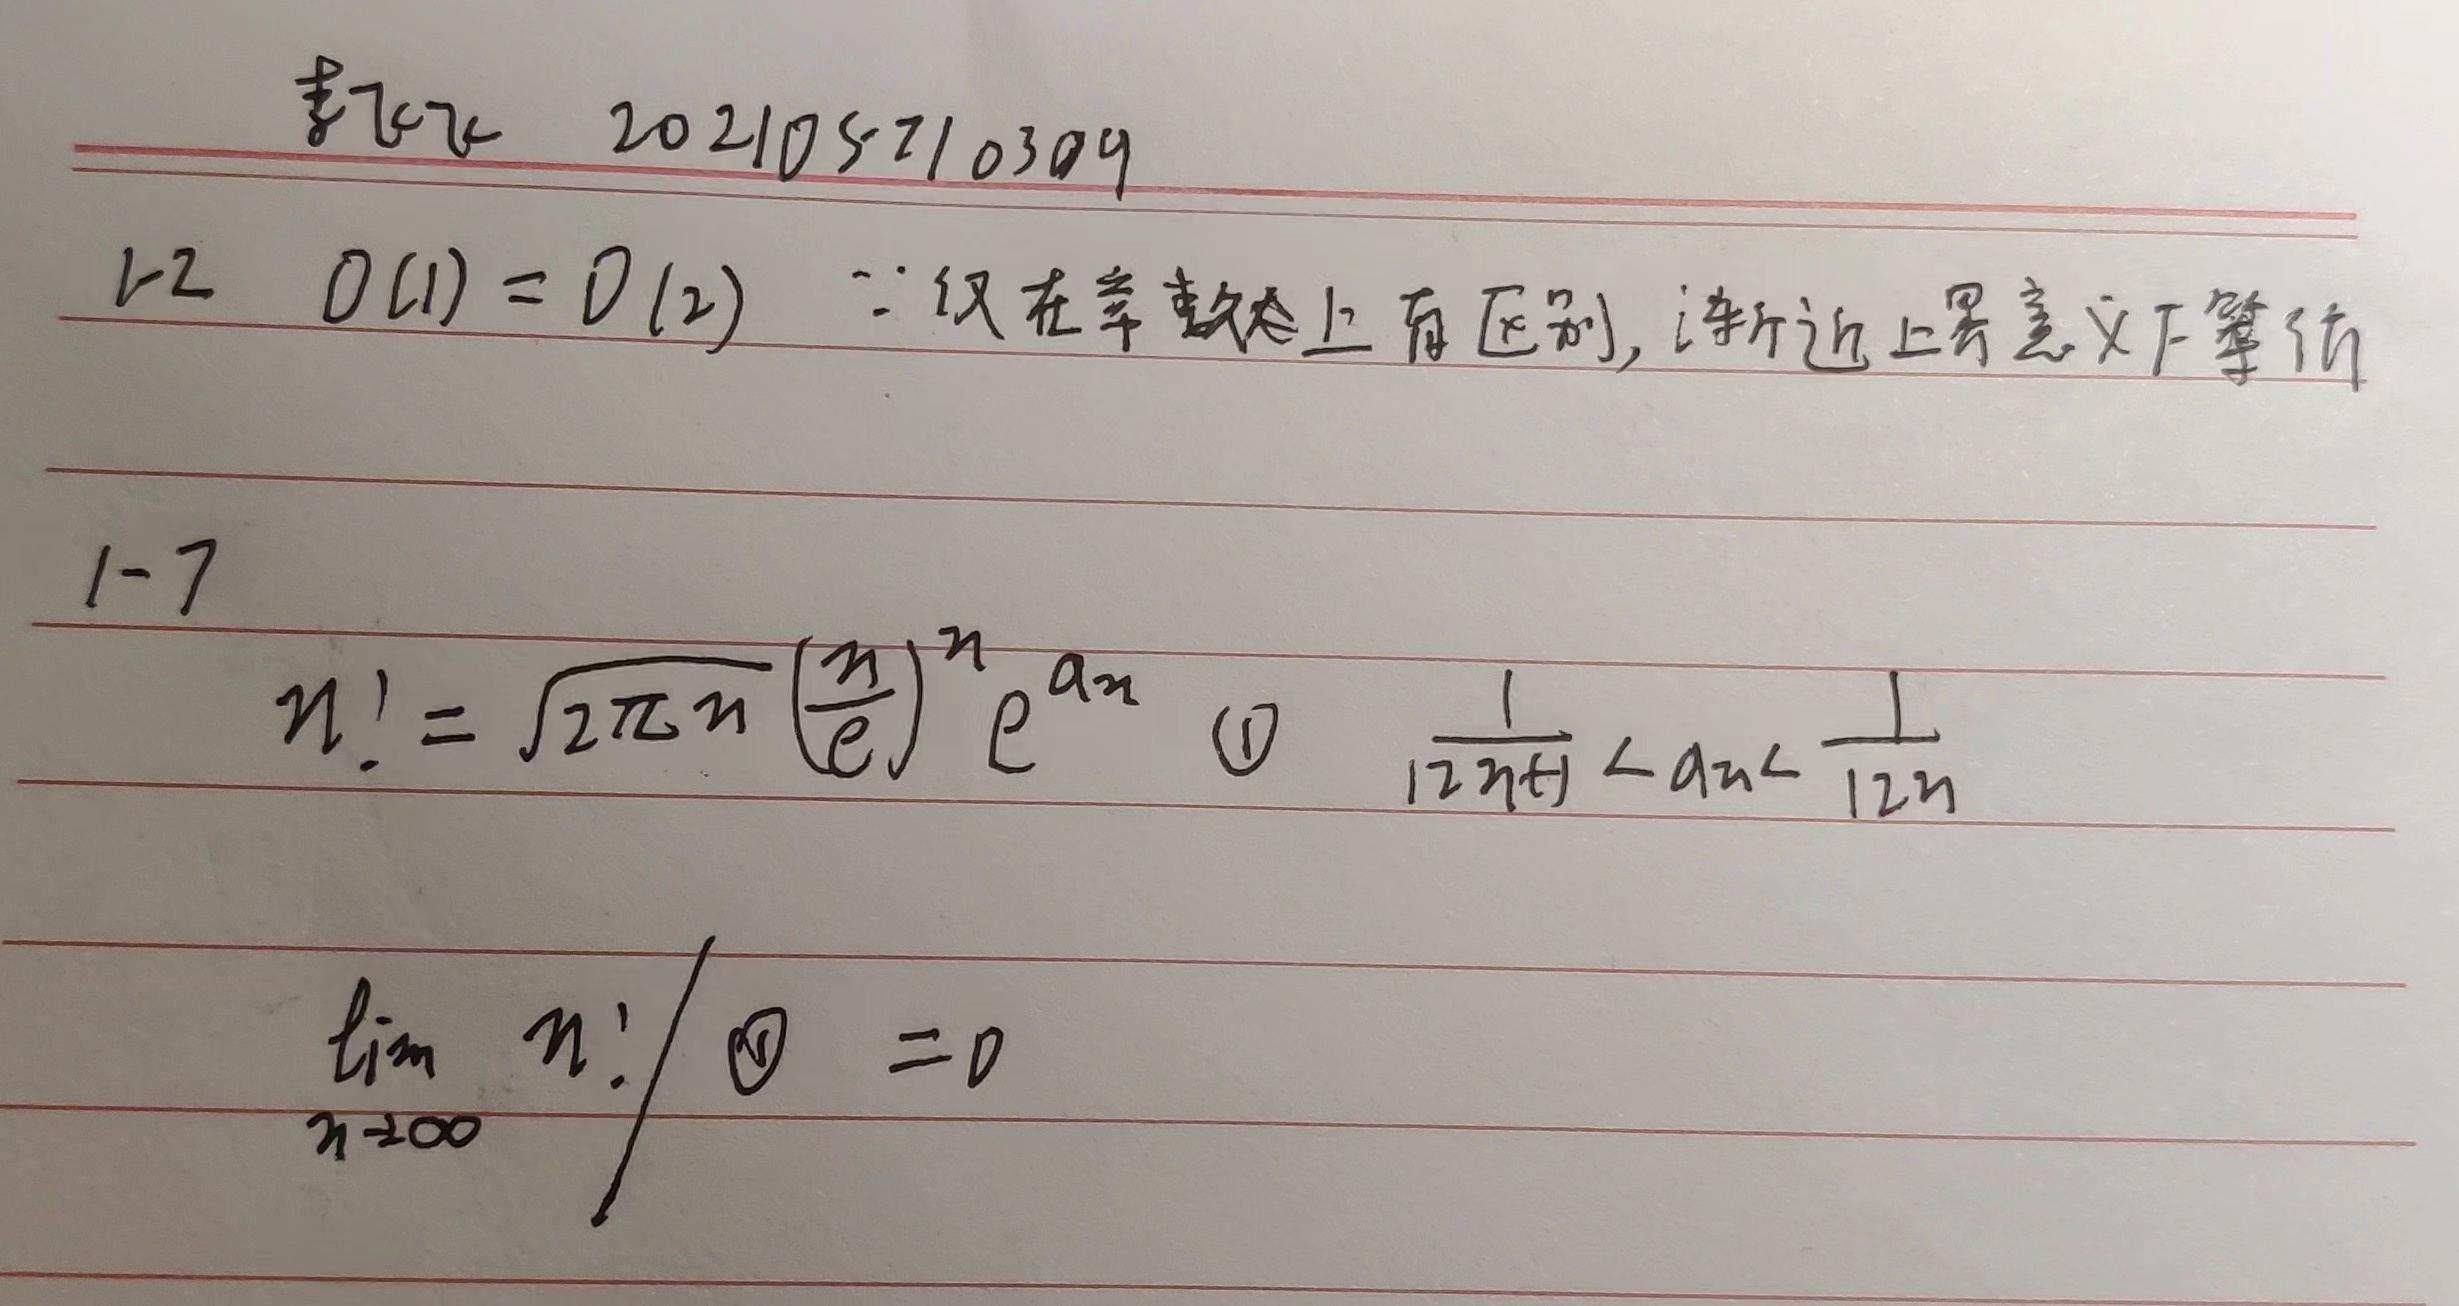 李飞飞 202105710309
1-2 O(1) = O(2) ∵ 仅在常数上有区别, 渐近上界意义下等价
1-7
n! = √(2πn) (n/e)^n e^(an) ① 1/(12n+1) < an < 1/(12n)
lim n→∞ n! / ① = 0